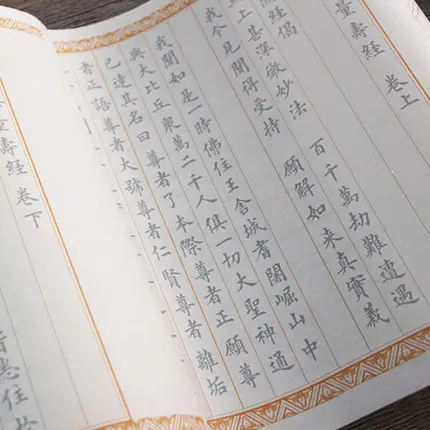 量壽經 卷上
經偈
上甚深微妙法 百千萬劫難遭遇
我今見聞得受持 願解如来真實義
我聞如是一時佛住王舍城耆闍崛山中
與大比丘衆萬二千人俱一切大聖神通
已達其名曰尊者了本際尊者正願尊
者正語尊者大號尊者仁賢尊者離垢
壽經 卷下